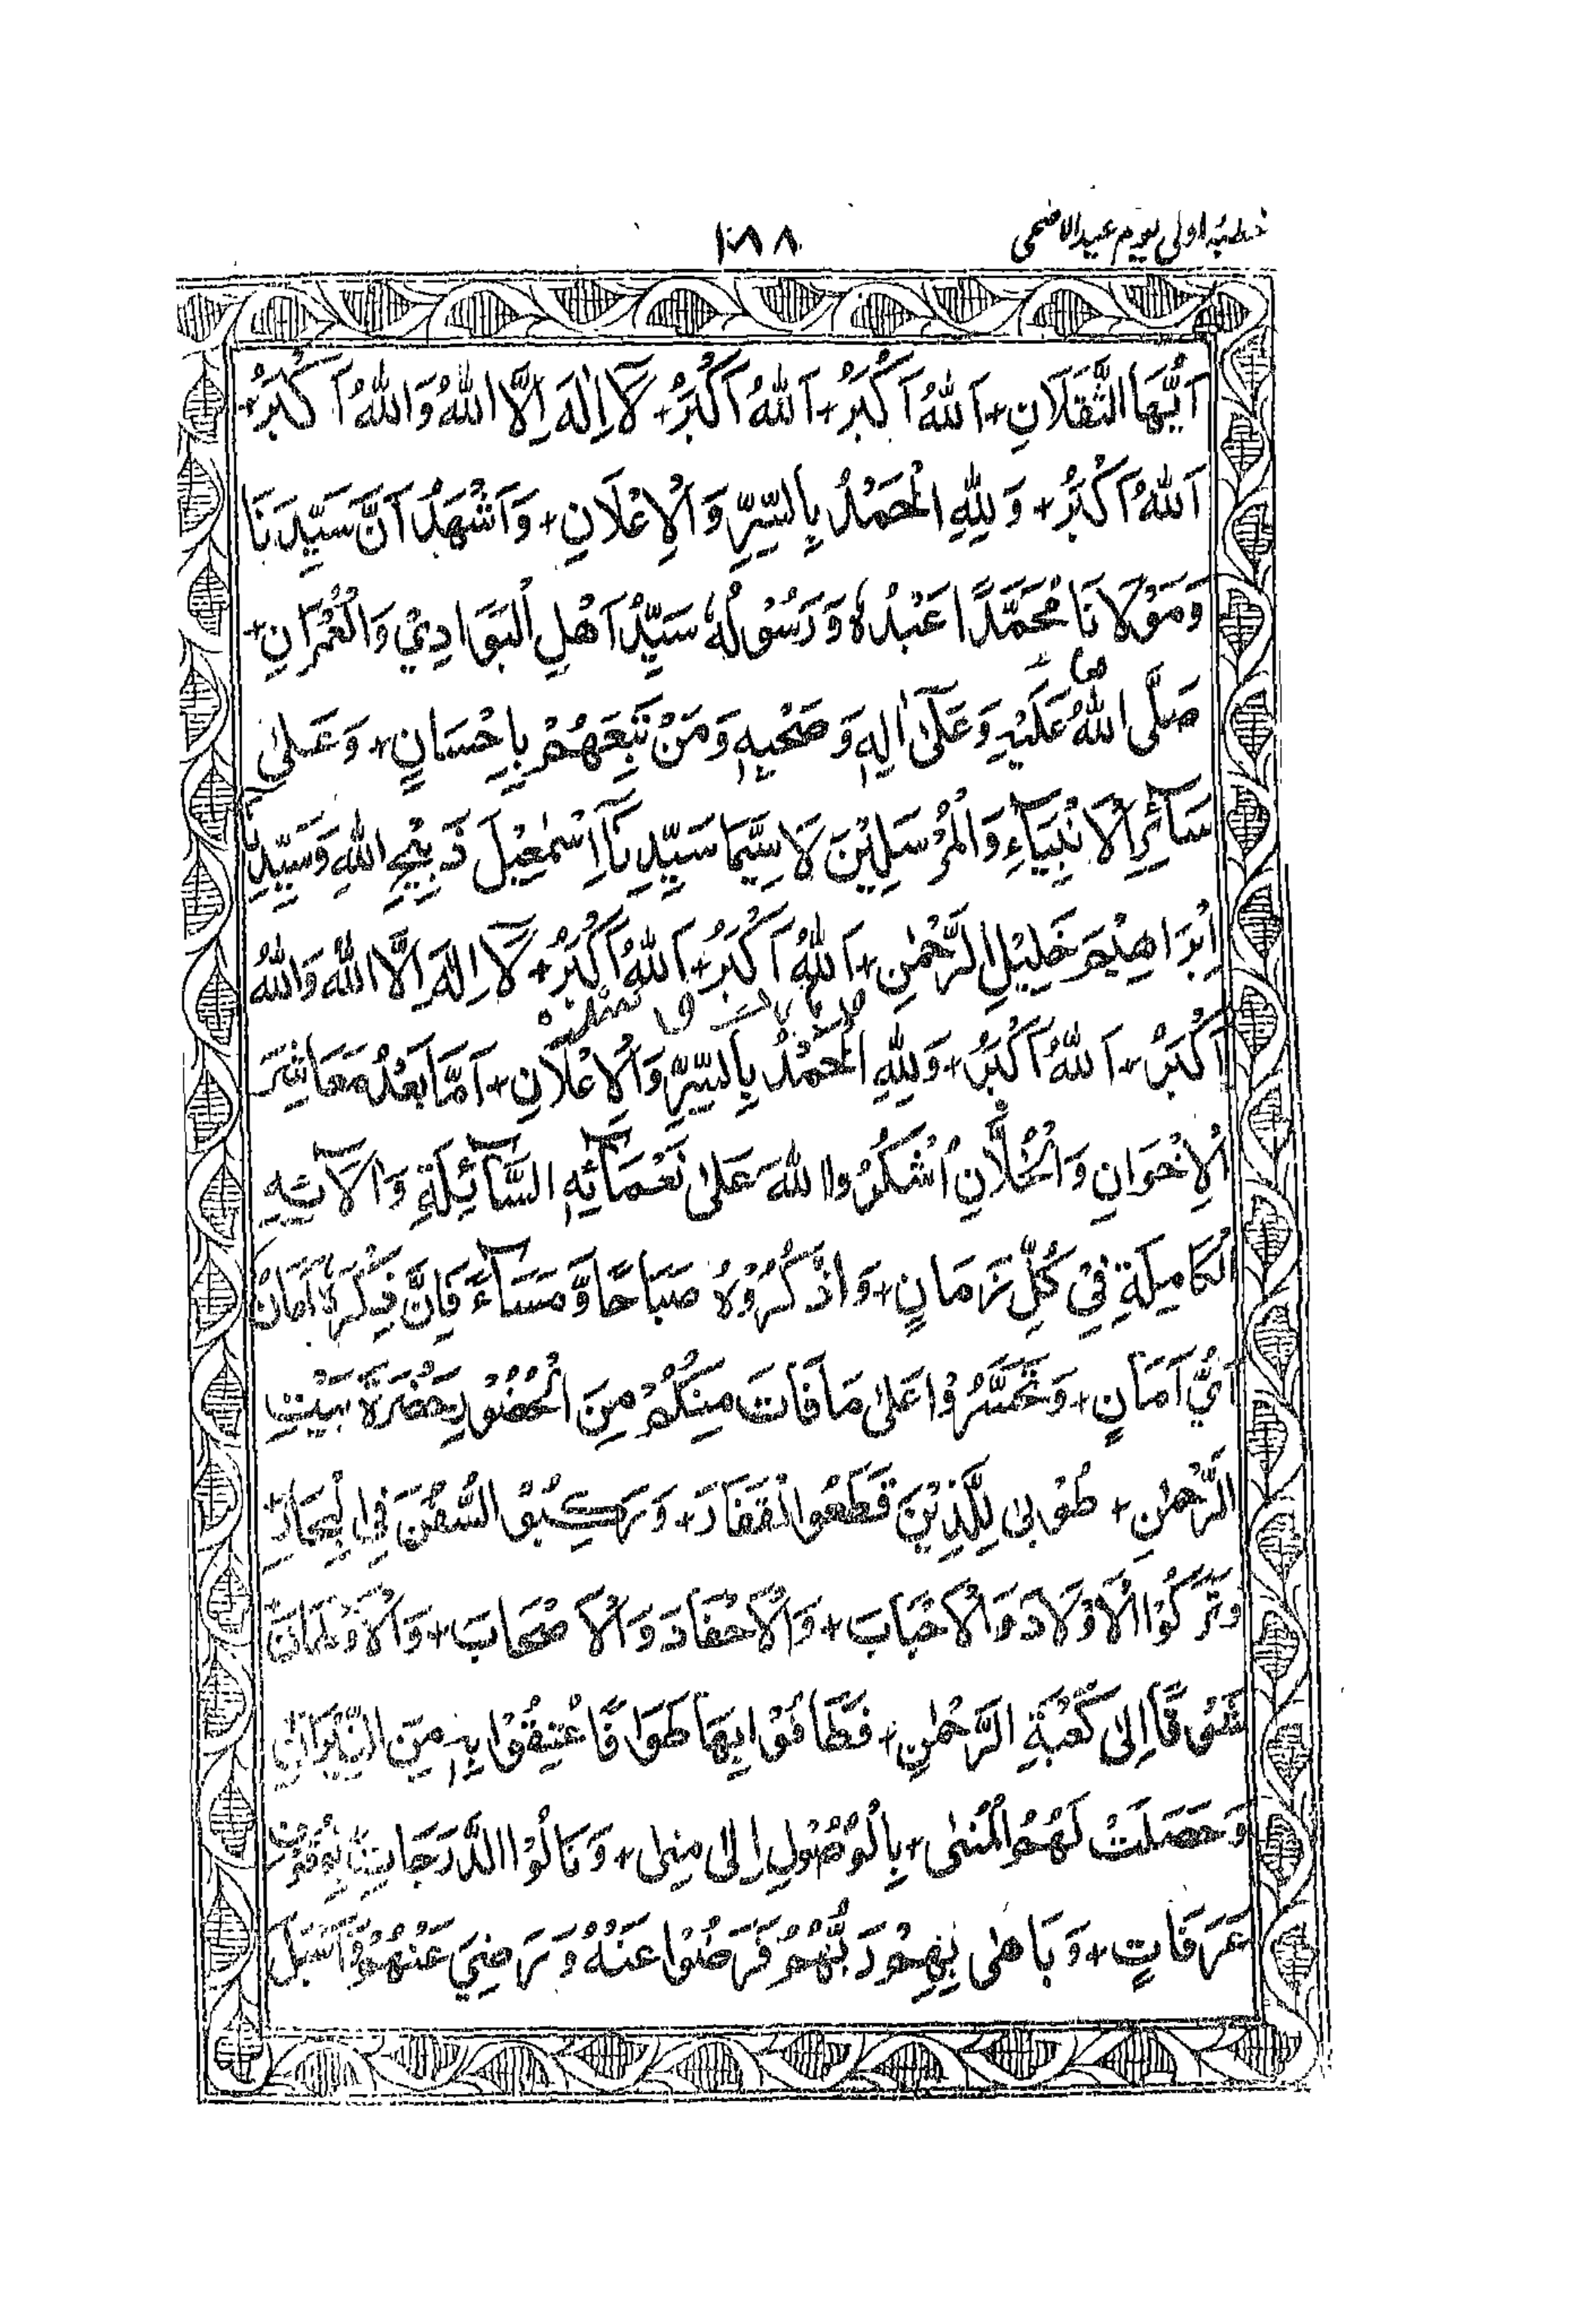 خطبۂ اولی یوم عید الاضحی
١٨٨
اَيُّهَا الثَّقَلَانِ+ اَللّٰهُ اَكْبَرُ+ اَللّٰهُ اَكْبَرُ+ لَآ اِلٰهَ اِلَّا اللّٰهُ وَاللّٰهُ اَكْبَرُ+
اَللّٰهُ اَكْبَرُ+ وَلِلّٰهِ الْحَمْدُ بِالسِّرِّ وَالْاِعْلَانِ+ وَاَشْهَدُ اَنَّ سَيِّدَنَا
وَمَوْلَانَا مُحَمَّدًا عَبْدُهٗ وَرَسُوْلُهٗ سَيِّدُ اَهْلِ الْبَوَادِيْ وَالْعُمْرَانِ+
صَلَّى اللّٰهُ عَلَيْهِ وَعَلٰٓى اٰلِهٖ وَصَحْبِهٖ وَمَنْ تَبِعَهُمْ بِاِحْسَانٍ+ وَعَلٰى
سَآئِرِ الْاَنْبِيَآءِ وَالْمُرْسَلِيْنَ لَاسِيَّمَا سَيِّدِنَآ اِسْمٰعِيْلَ ذَبِيْحِ اللّٰهِ وَسَيِّدِنَا
اِبْرَاهِيْمَ خَلِيْلِ الرَّحْمٰنِ+ اَللّٰهُ اَكْبَرُ+ اَللّٰهُ اَكْبَرُ+ لَآ اِلٰهَ اِلَّا اللّٰهُ وَاللّٰهُ
اَكْبَرُ+ اَللّٰهُ اَكْبَرُ+ وَلِلّٰهِ الْحَمْدُ بِالسِّرِّ وَالْاِعْلَانِ+ اَمَّا بَعْدُ مَعَاشِرَ
الْاِخْوَانِ وَالْخُلَّانِ اُشْكُرُوا اللّٰهَ عَلٰى نَعْمَآئِهِ السَّآئِلَةِ وَاٰلَآئِهِ
الْكَامِلَةِ فِيْ كُلِّ زَمَانٍ+ وَاذْكُرُوْهُ صَبَاحًا وَّمَسَآءً فَاِنَّ ذِكْرَهٗ اَمَانٌ
اَيُّ اَمَانٍ+ وَتَحَسَّرُوْا عَلٰى مَا فَاتَ مِنْكُمْ مِنَ الْحُضُوْرِ بِحَضْرَةِ بَيْتِ
الرَّحْمٰنِ+ طُوْبٰى لِلَّذِيْنَ قَطَعُوا الْقِفَارَ+ وَرَكِبُوْا السُّفُنَ فِي الْبِحَارِ
وَتَرَكُوْا الْاَوْلَادَ وَالْاَحْبَابَ+ وَالْاَحْفَادَ وَالْاَصْحَابَ+ وَالْاَوْطَانَ
شَوْقًا اِلٰى كَعْبَةِ الرَّحْمٰنِ+ فَطَافُوْا بِهَا طَوَافًا عْتِقُوْا بِهٖ مِنَ النِّيْرَانِ
وَحَصَلَتْ لَهُمُ الْمُنٰى+ بِالْوُصُوْلِ اِلٰى مِنٰى+ وَنَالُوْا الدَّرَجَاتِ بِوُقُوْفِ
عَرَفَاتٍ+ وَبَاهٰى بِهِمْ رَبُّهُمْ فَرَضُوْا عَنْهُ وَرَضِيَ عَنْهُمْ وَاَسْبَلَ